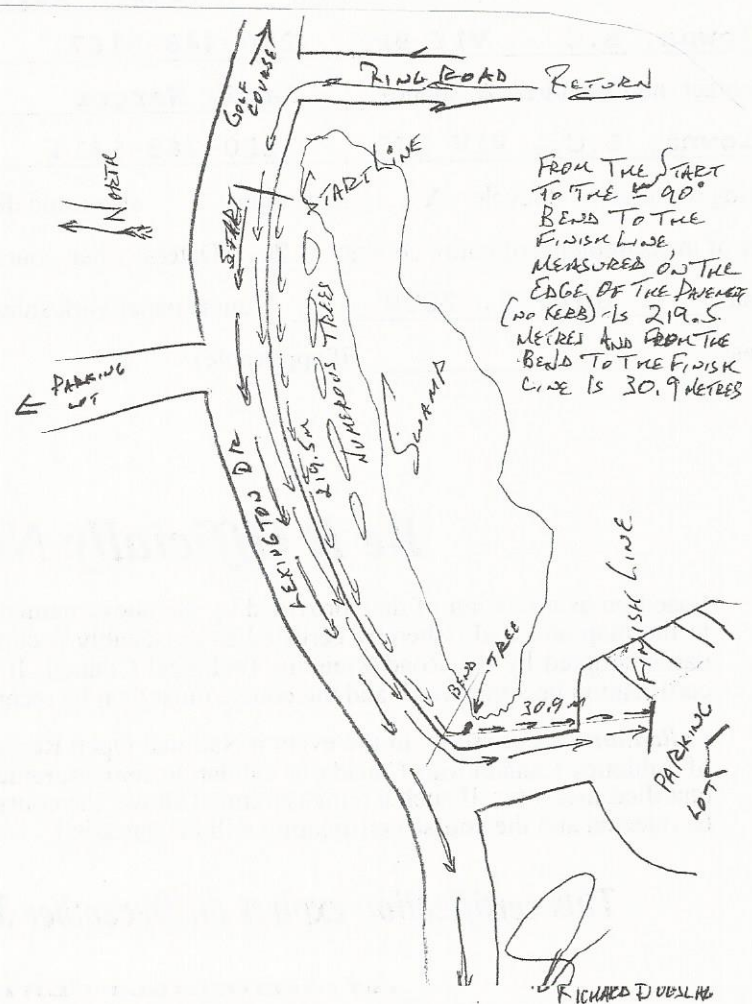 GOLF
COURSE
RING ROAD
RETURN
NORTH
START
START LINE
FROM THE START
TO THE ≃ 90°
BEND TO THE
FINISH LINE
MEASURED ON THE
EDGE OF THE PAVEMENT
(NO KERB) IS 219.5
METRES AND FROM THE
BEND TO THE FINISH
LINE IS 30.9 METRES
PARKING
LOT
219.5M
NUMEROUS TREES
SWAMP
LEXINGTON DR
BEND
TREE
30.9 M
FINISH LINE
PARKING
LOT
RICHARD